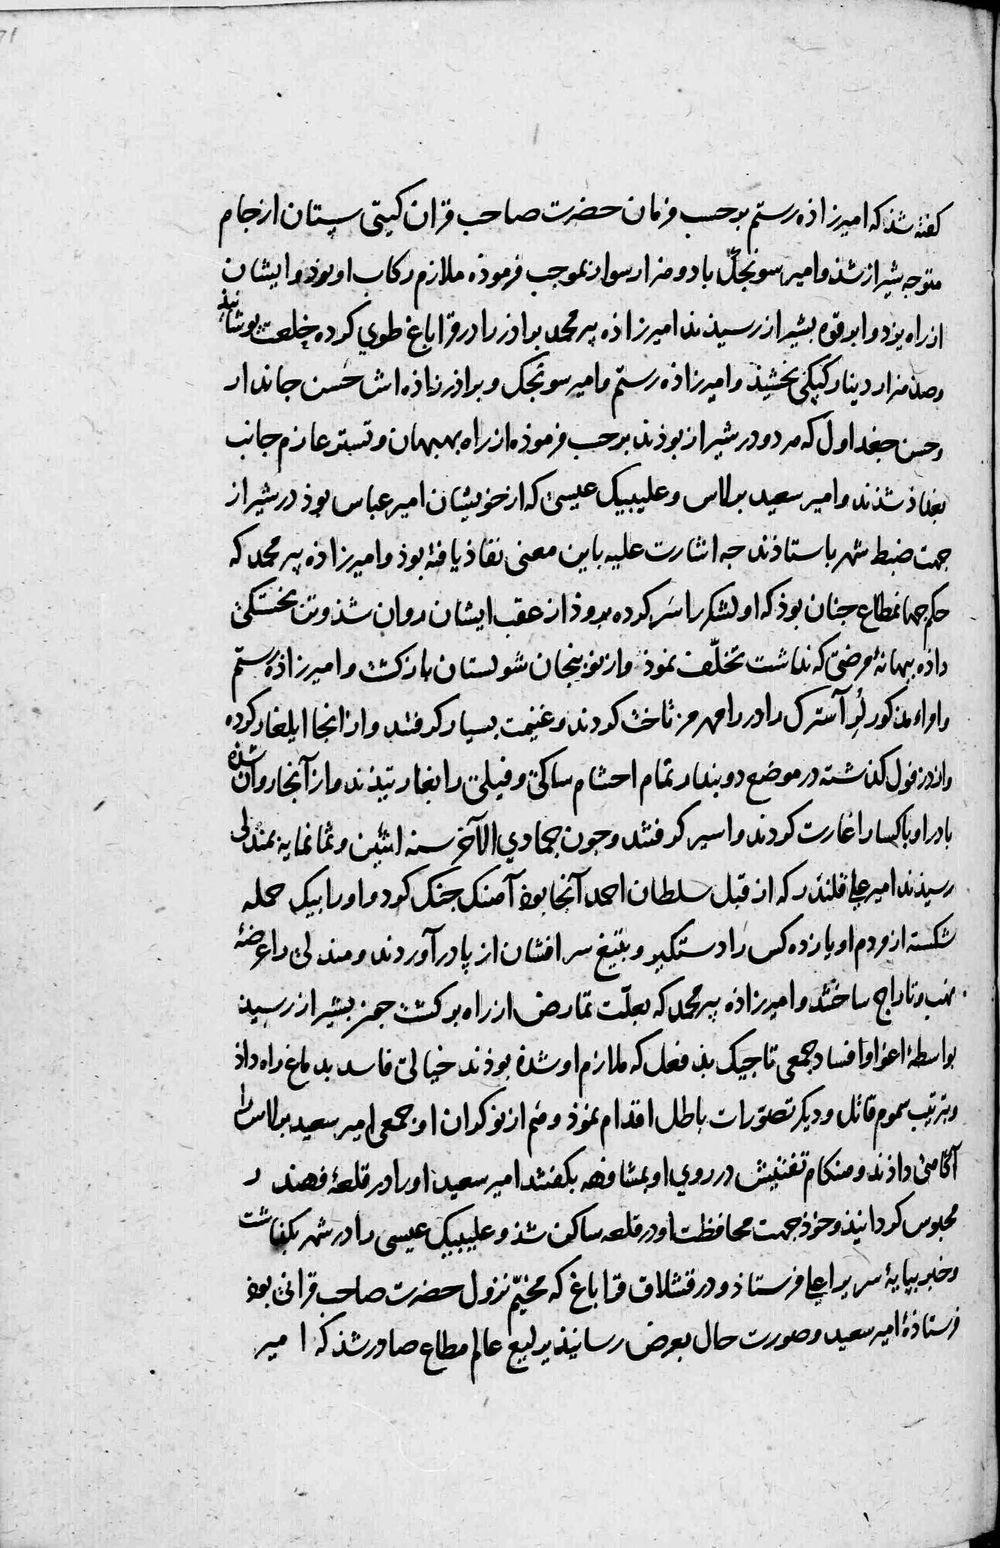 کفته شذ که امیرزاذه رستم برحسب فرمان حضرت صاحب قران کیتی ستان از جام
متوجه شیراز شذ و امیر سونجک با دو هزار سوار بموجب فرموذه ملازم رکاب او بوذ و ایشان
از راه یزد و ابرقوه بشیراز رسیذند امیرزاذه پیر محمد براذر را در قراباغ طوی کرده خلعت پوشانیذ
و صذ هزار دینار کپکی بخشیذ و امیرزاذه رستم و امیر سونجک و براذرزاذه اش حسن جاندار
و حسن جغداول که هر دو در شیراز بوذند برحب فرموذه از راه بهبهان و تستر عازم جانب
بغداذ شذند و امیر سعید برلاس و علیبیک عیسی که از خویشان امیر عباس بوذ در شیراز
جهت ضبط شهر باستاذند جه اشارت علیه باین معنی نفاذ یافته بوذ و امیرزاذه پیر محمد که
حکم جهانمطاع جنان بوذ که او لشکر را سر کرده بروذ از عقب ایشان روان شذ و تن بخستکی
داذه ببهانهٔ مرضی که نداشت تخلّف نموذ و از نوبنجان شولستان بازکشت و امیرزاذه رستم
و امراء مذکور لُر آسترک را در رامهرمز تاخت کردند و غنیمت بسیار کرفتند و از انجا ایلغار کرده
و از دزفول کذشته در موضع دوبندار تمام احشام ساکی و فیلی را بغارتیذند و از آنجا روان شذه
بادرا و باکسا را غارت کردند و اسیر کرفتند و جون جمادی الآخر سنه اثنین و ثمانمایه بمندلی
رسیذند امیر علی قلندر که از قبل سلطان احمد آنجا بوذ آهنک جنک کرد و او را بیک حمله
شکسته از مردم او یازده کس را دستکیر و بتیغ سرافشان از پا درآوردند و مندلی را عرضهٔ
نهب و تاراج ساختند و امیرزاذه پیر محمد که بعلّت تمارض از راه برکشت جون بشیراز رسید
بواسطهٔ اغوا و افساد جمعی تاجیک بذ فعل که ملازم او شذه بوذند خیالی فاسد بدماغ راه داذ
و بترتیب سموم قاتل و دیکر تصوّرات باطل اقدام نموذ و هم از نوکران او جمعی امیر سعید برلاس را
آکاهی داذند و هنکام تفتیش در روی او بمشافهه بکفتند امیر سعید او را در قلعهٔ قهندر
محبوس کردانیذ و خوذ جهت محافظت او در قلعه ساکن شذ و علیبیک عیسی را در شهر بکذاشت
و خبر بپایهٔ سریر اعلی فرستاذ و در قشلاق قراباغ که مخیّم نزول حضرت صاحب قرانی بوذ
فرستاذهٔ امیر سعید صورت حال بعرض رسانیذ یرلیغ عالم مطاع صادر شذ که امیر